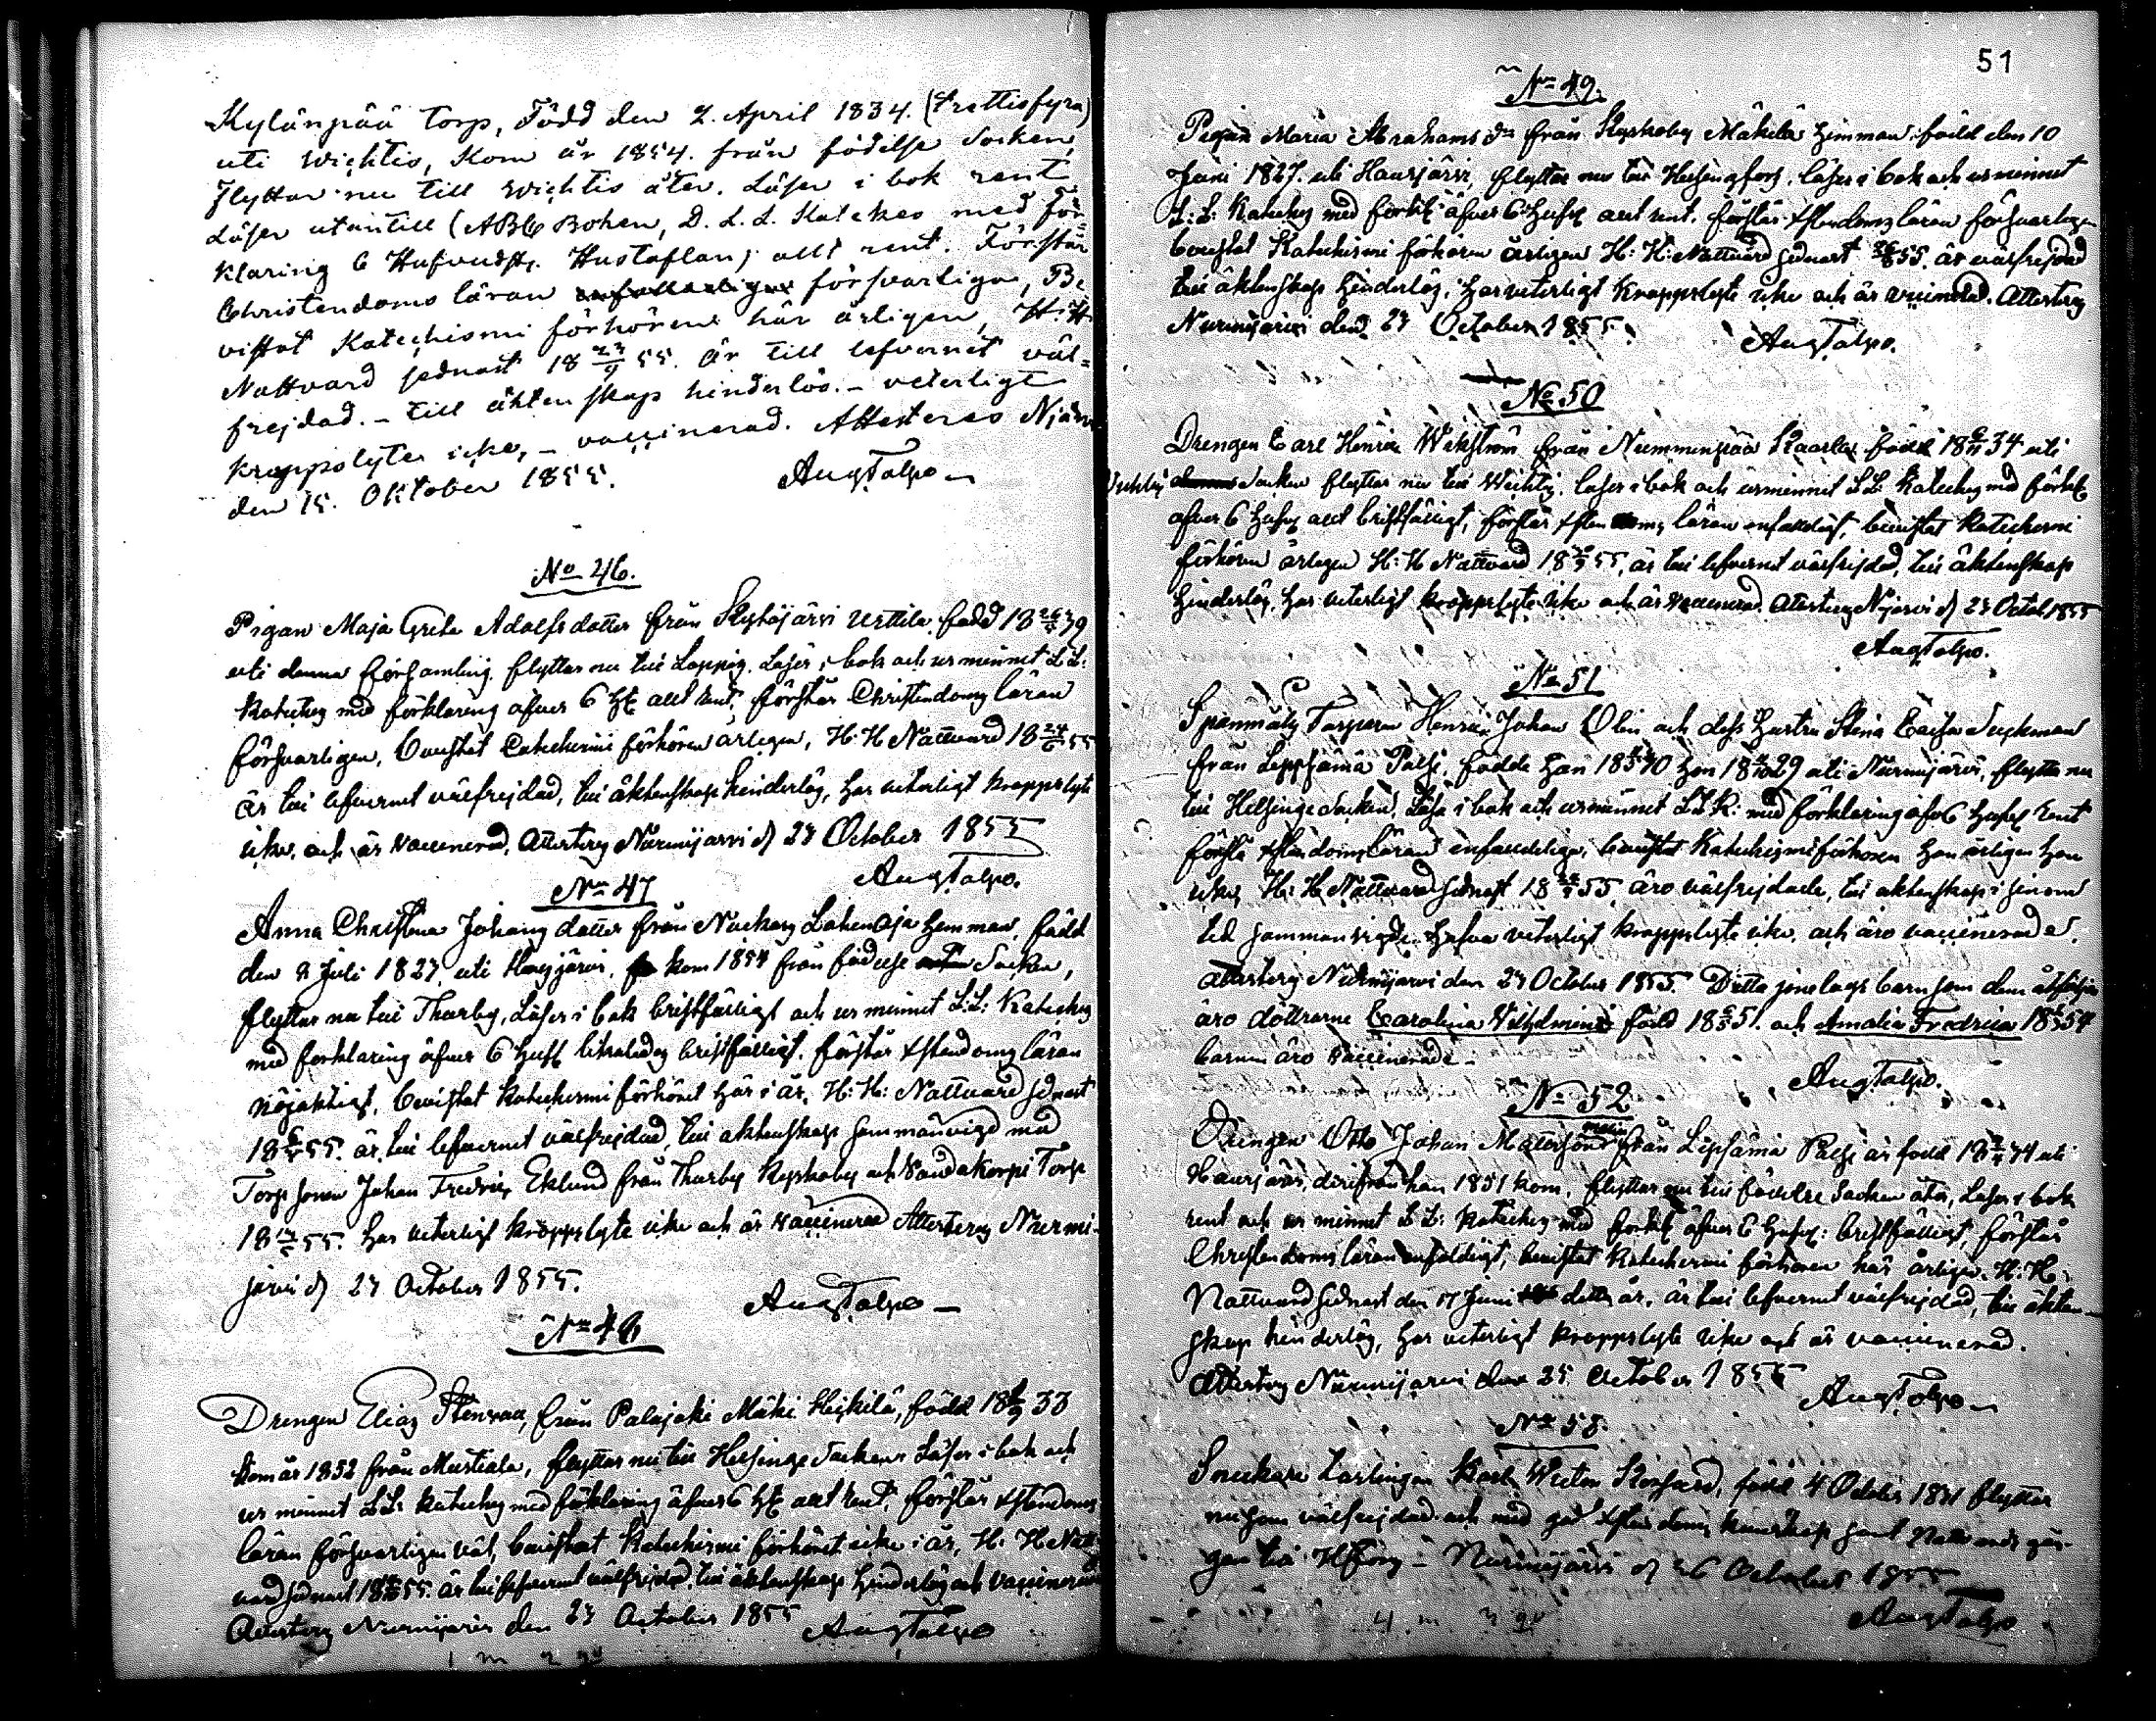 Kylänpää Torp, Född den 2. April 1834. (trettiofyra)
uti Wichtis, Kom år 1854. från födelse Socken,
Flyttar nu till Wichtis åter. Läser i bok rent
Läser utantill (ABC Boken, D. L. L. Katekes med För=
klaring 6 Hufvudst. Hustaflan) allt rent. Förstår
Christendoms läran försvarligen, Be
vistat Katechismi förhören här årligen, H. H.
Nattvard sednast 18 23/9 55. Är till lefvernet väl=
frejdad. - till äktenskap hinderlös. - veterligt
kroppslyte icke, - vaccinerad. Attesteras Njärvi
den 15. Oktober 1855.
AugTalpo
No 46.
Pigan Maja Greta Adolfsdotter från Uotila, född
uti denna församling, flyttar nu till Loppis. Läser i bok och ur minnet L.L:
Kateches med förklaring öfver 6 Hst allt rent, förstår Christendoms läran
försvarligen, bevistat Catechismi förhören årligen, H. H Nattvard 18 24/6 55
är till lefvernet välfrejdad, till äktenskap hinderlös, har veterligt kroppslyte
icke, och är vaccinerad, Attesteras Nurmijärvi d 23 October 1855
AugTalpo.
No 47
Anna Christina Johans dotter från Nuckars Lakenoja hemman, född
den 2 Juli 1827 uti Hausjärvi, kom 1854 från födelse Socken,
flyttar nu till Thusby, Läser i bok bristfälligt och ur minnet L:L: Kateches
med förklaring öfver 6 Hufst bristfälligt. förstår xstendoms läran
nöjaktigt, bevistat Katechismi förhöret här i år, H: H: Nattvard sednast
18 55. är till lefvernet välfrejdad, till äktenskap sammanvigd med
Torp sonen Johan Fredric Eklund från Thusby Kyrkoby och Torp
18 55. har veterligt kroppslyte icke och är vaccinerad Attesteras Nurmi-
järvi d 23 October 1855.
AugTalpo
No 48
Drengen Elias Stenvall, från Palojoki Mäki Heikkilä, född 18 33
kom år 1852 från Mustiala, flyttar nu till Helsinge Socken. Läser i bok och
ur minnet L.L: Kateches med förklaring öfver 6 Hst allt rent, förstår xstendoms
läran försvarligen väl, bevistat Katechismi förhöret icke i år, H. H Natt-
vard sednast 18 55. är till lefvernet välfrejdad, till äktenskap hinderlös och vaccinerad
Attesteras Nurmijärvi den 23 October 1855
AugTalpo
51
No 49.
Pigan Maria Abrahams dr från Kyrkoby Mäkelä hemman född den 10
Juni 1827. uti Hausjärvi, flyttar nu till Helsingfors, läser i bok och ur minnet
L: L: Kateches med förkl öfver 6 Hufst allt rent. förstår xstendoms läran försvarligen
bevistat Katechismi förhören årligen H: H: Nattvard sednast 55. är välfrejdad
till äktenskap hinderlös, har veterligt kroppslyte icke och är vaccinerad. Attesteras
Nurmijärvi den 23 October 1855.
AugTalpo.
No 50
Drengen Carl Henric Wikström från Nummenpää Kaarla född 18 34 uti
Vichtis Socken flyttar nu till Wichtis. läser i bok och ur minnet L L: Kateches med förkl
öfver 6 Hufst allt bristfälligt, förstår xstendoms läran enfaldigt, bevistat Katechismi
förhören årligen H: H Nattvard 18 55, är till lefvernet välfrejdad, till äktenskap
hinderlös, har veterligt kroppslyte icke och är vaccinerad. Attesteras Njärvi d 23 Octob 1855
AugTalpo.
No 51
Spannmåls Henric Johan Olin och dess hustru Stina Caisa
från Leppsämä Palhi, födde han 18 hon 18 29 uti Nurmijärvi, flytta nu
till Helsinge Socken, Läsa i bok och ur minnet L L K: med förklaring öfver 6 Hufst rent
förstå xstendoms läran enfaldeligen, bevistat Katechismi förhören han årligen hon
icke, H: H Nattvard sednast 18 55, äro välfrejdade, till äktenskap
sammanvigde, hafva veterligt kroppslyte icke, och äro vaccinerade.
Attesteras Nurmijärvi den 23 October 1855. Detta barn som dem åtfölja
äro döttrarne Carolina Vilhelmina född 18 51. och Amalia Fredrica 18 54
barnen äro vaccinerade.
AugTalpo.
No 52
Drengen Otto Johan Mattsson från Lepsämä Palhi är född 18 34 uti
Hausjärvi, derifrån han 1851 kom, flyttar nu till födelse Socken åter, Läser i bok
rent och ur minnet L L: Kateches med förkl öfver 6 Hufst: bristfälligt, förstår
Christendoms läran enfaldigt, bevistat Katechismi förhören här årligen. H: H:
Nattvard sednast den 17 Juni detta år, är till lefvernet välfrejdad, till äkten-
skap hinderlös, har veterligt kroppslyte icke och är vaccinerad.
Attesteras Nurmijärvi den 25 October 1855
AugTalpo
No 53.
Snickare Lärlingen Karl född 4 October flyttar
nu som välfrejdad och med god xstendoms kunskap samt Nattvards gån-
gen till Hfors - Nurmijärvi d 26 October 1855
AugTalpo